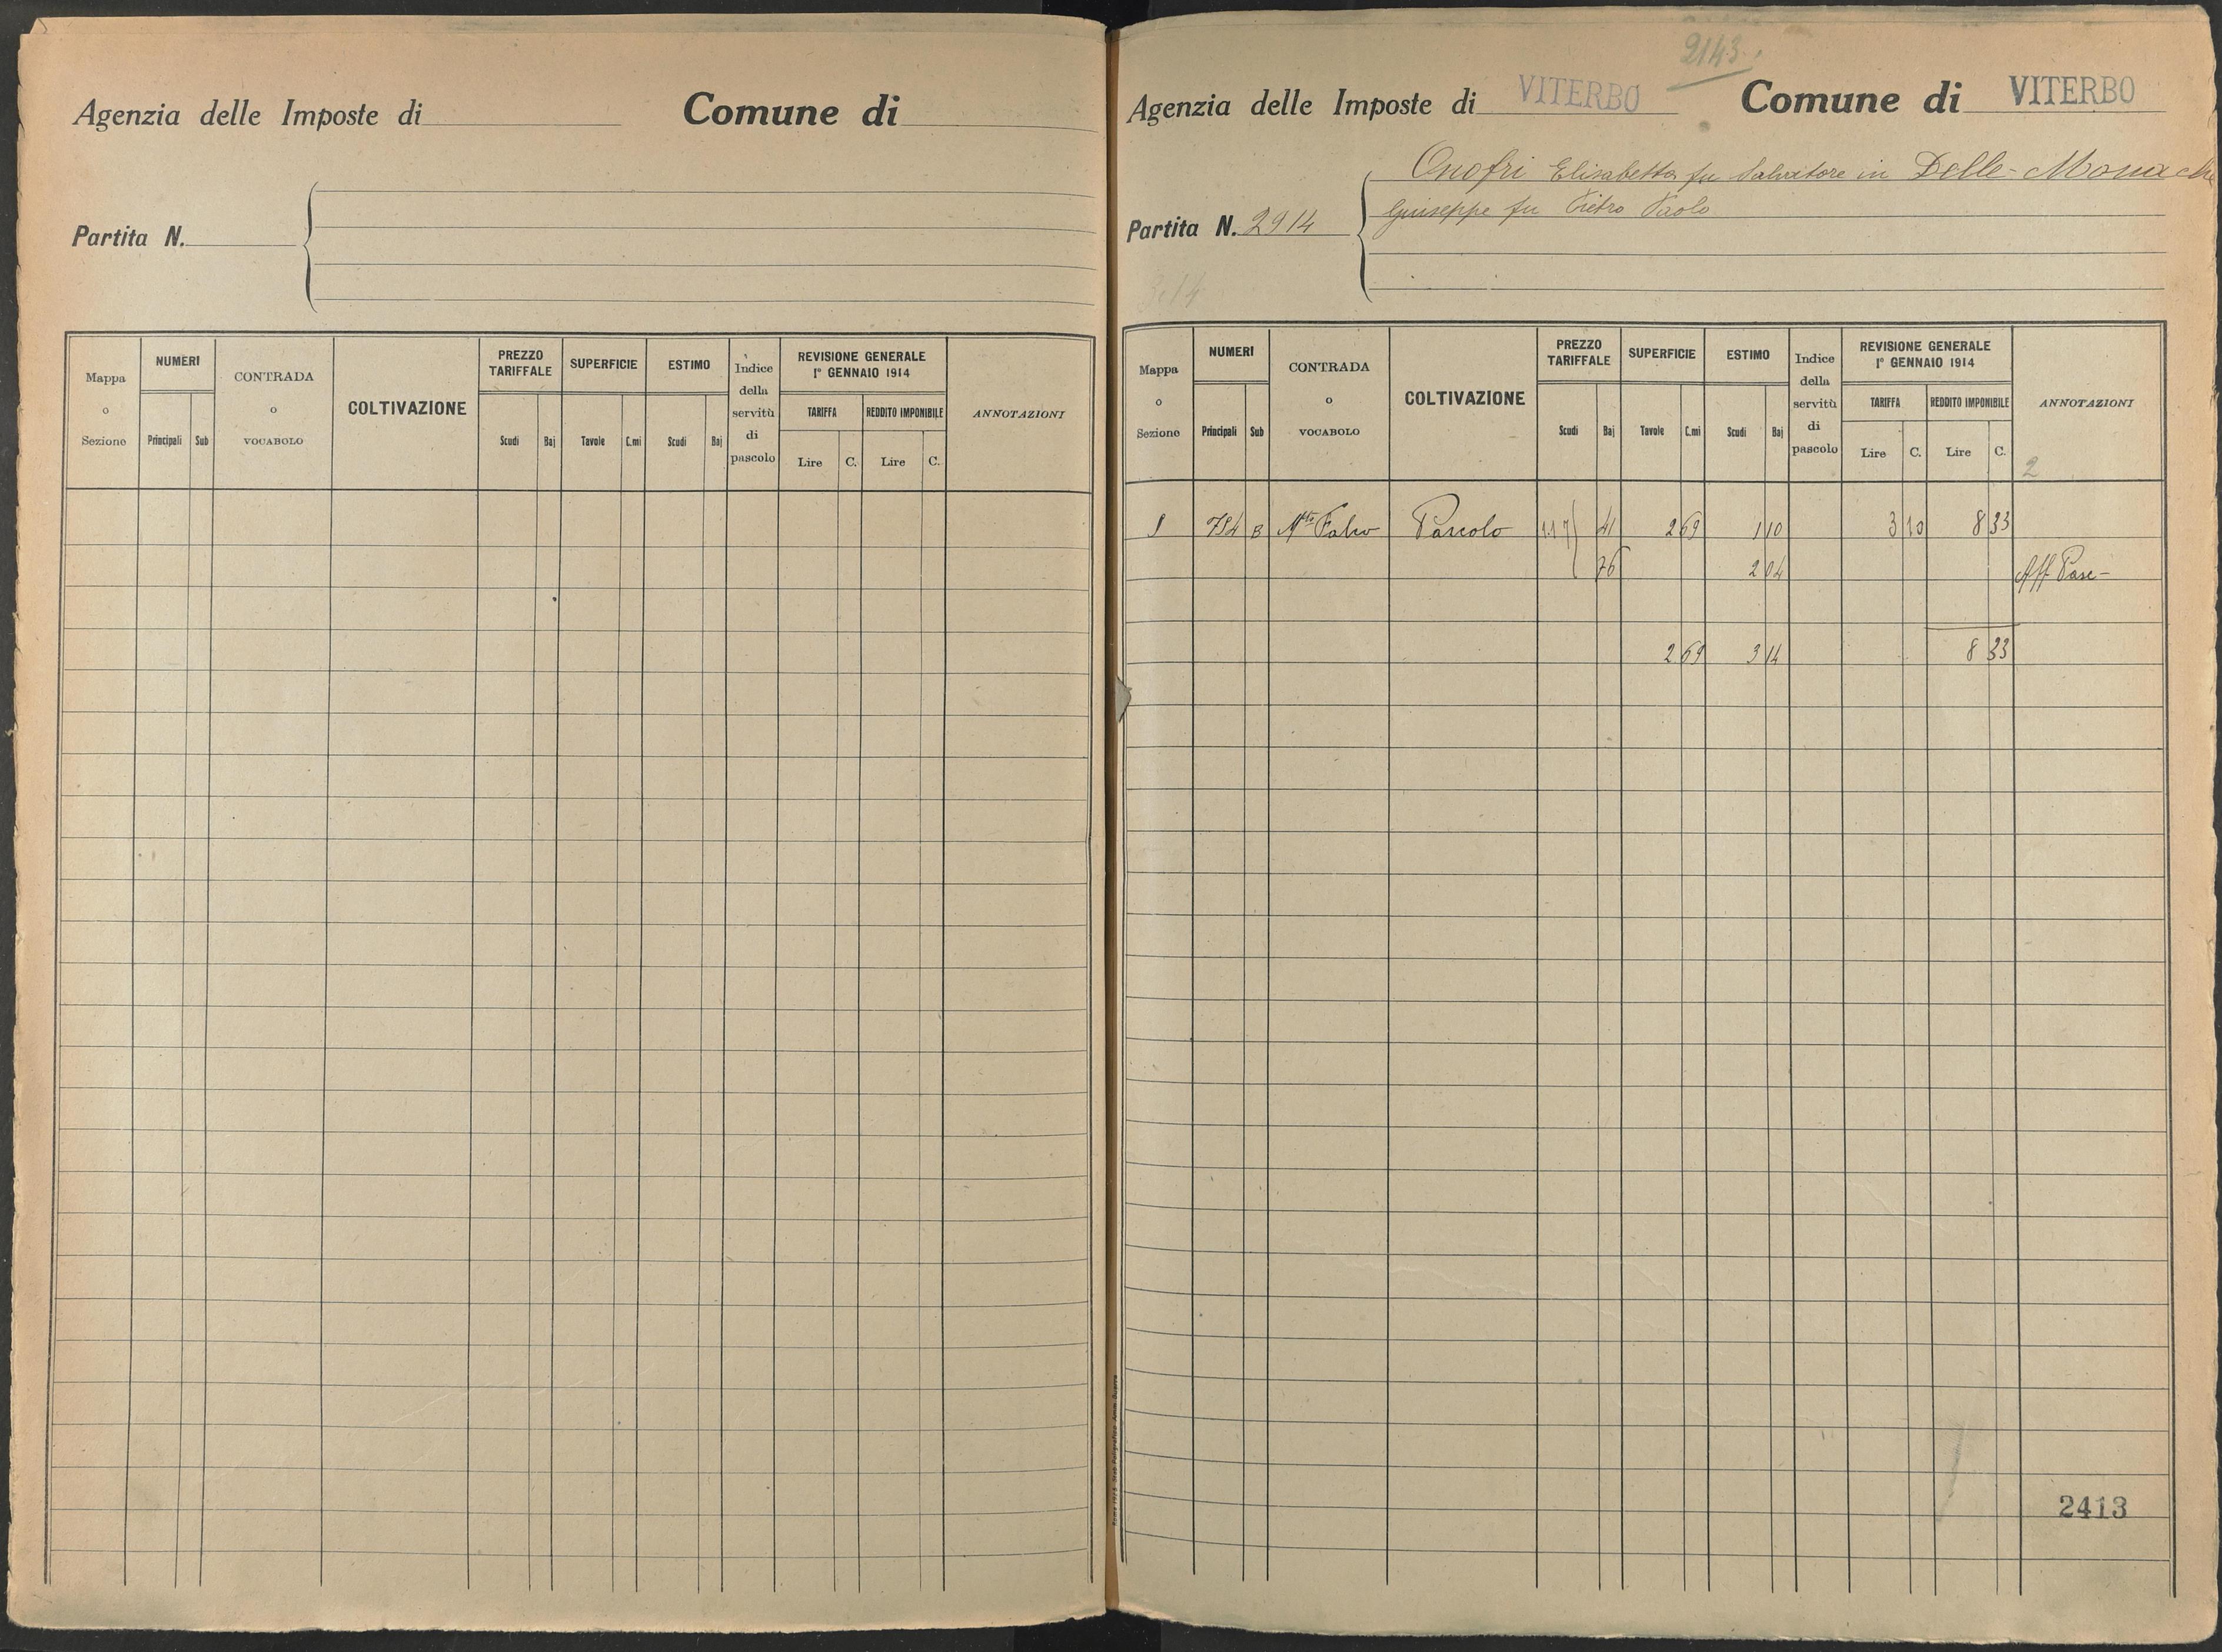 Agenzia delle Imposte di Comune di
Partita N.
Mappa o Sezione NUMERI Principali Sub CONTRADA o VOCABOLO COLTIVAZIONE PREZZO TARIFFALE Scudi Baj SUPERFICIE Tavole C.mi ESTIMO Scudi Baj Indice della servitù di pascolo REVISIONE GENERALE 1° GENNAIO 1914 TARIFFA Lire C. REDDITO IMPONIBILE Lire C. ANNOTAZIONI
2143
Agenzia delle Imposte di VITERBO Comune di VITERBO
Onofri Elisabetta fu Salvatore in Delle-Monache
Giuseppe fu Pietro Paolo
Partita N. 2914
3.14
Mappa o Sezione NUMERI Principali Sub CONTRADA o VOCABOLO COLTIVAZIONE PREZZO TARIFFALE Scudi Baj SUPERFICIE Tavole C.mi ESTIMO Scudi Baj Indice della servitù di pascolo REVISIONE GENERALE 1° GENNAIO 1914 TARIFFA Lire C. REDDITO IMPONIBILE Lire C. ANNOTAZIONI
2
1 794 B Mte Falco Pascolo 1.17 41 2 69 1 10 3 10 8 33
76 2 04 Aff Pasc-
2 69 3 14 8 33
2413